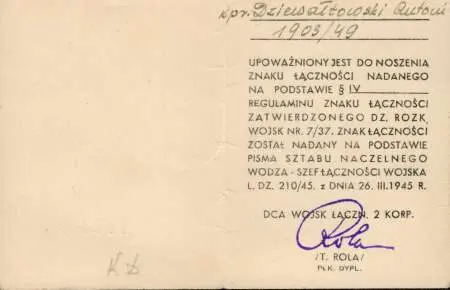 kpr. Dziewałtowski Antoni
1903/49
UPOWAŻNIONY JEST DO NOSZENIA
ZNAKU ŁĄCZNOŚCI NADANEGO
NA PODSTAWIE § IV
REGULAMINU ZNAKU ŁĄCZNOŚCI
ZATWIERDZONEGO DZ. ROZK,
WOJSK NR. 7/37. ZNAK ŁĄCZNOŚCI
ZOSTAŁ NADANY NA PODSTAWIE
PISMA SZTABU NACZELNEGO
WODZA - SZEF ŁĄCZNOŚCI WOJSKA
L. DZ. 210/45. z DNIA 26. III. 1945 R.
DCA WOJSK ŁĄCZN. 2 KORP.
Rola
/T. ROLA/
PŁK. DYPL.